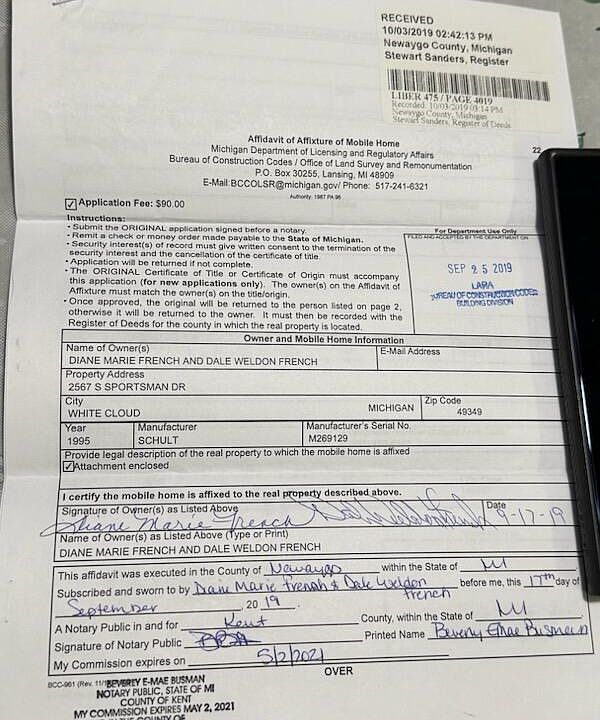 RECEIVED
10/03/2019 02:42:13 PM
Newaygo County, Michigan
Stewart Sanders, Register
LIBER 475 / PAGE 4019
Recorded: 10/03/2019 03:14 PM
Newaygo County, Michigan
Stewart Sanders, Register of Deeds
Affidavit of Affixture of Mobile Home
22
Michigan Department of Licensing and Regulatory Affairs
Bureau of Construction Codes / Office of Land Survey and Remonumentation
P.O. Box 30255, Lansing, MI 48909
E-Mail:BCCOLSR@michigan.gov/ Phone: 517-241-6321
Authority: 1987 PA 96
Application Fee: $90.00
Instructions:
• Submit the ORIGINAL application signed before a notary.
• Remit a check or money order made payable to the State of Michigan.
• Security interest(s) of record must give written consent to the termination of the
security interest and the cancellation of the certificate of title.
• Application will be returned if not complete.
• The ORIGINAL Certificate of Title or Certificate of Origin must accompany
this application (for new applications only). The owner(s) on the Affidavit of
Affixture must match the owner(s) on the title/origin.
• Once approved, the original will be returned to the person listed on page 2,
otherwise it will be returned to the owner. It must then be recorded with the
Register of Deeds for the county in which the real property is located.
For Department Use Only
FILED AND ACCEPTED BY THE DEPARTMENT ON
SEP 25 2019
LARA
BUREAU OF CONSTRUCTION CODES
BUILDING DIVISION
Owner and Mobile Home Information
Name of Owner(s)
E-Mail Address
DIANE MARIE FRENCH AND DALE WELDON FRENCH
Property Address
2567 S SPORTSMAN DR
City
Zip Code
WHITE CLOUD
MICHIGAN
49349
Year
Manufacturer
Manufacturer's Serial No.
1995
SCHULT
M269129
Provide legal description of the real property to which the mobile home is affixed
Attachment enclosed
I certify the mobile home is affixed to the real property described above.
Signature of Owner(s) as Listed Above
Date
Diane Marie French
9-17-19
Name of Owner(s) as Listed Above (Type or Print)
DIANE MARIE FRENCH AND DALE WELDON FRENCH
This affidavit was executed in the County of Newaygo within the State of MI
Subscribed and sworn to by Diane Marie French & Dale Weldon French before me, this 17th day of
September, 2019.
A Notary Public in and for Kent County, within the State of MI
Signature of Notary Public Printed Name Beverly E-Mae Busman
My Commission expires on 5/2/2021
OVER
BCC-961 (Rev. 11/
BEVERLY E-MAE BUSMAN
NOTARY PUBLIC, STATE OF MI
COUNTY OF KENT
MY COMMISSION EXPIRES MAY 2, 2021